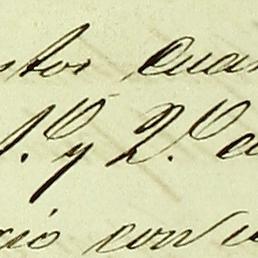 stos cuan
1.º y 2.º a
cio con v